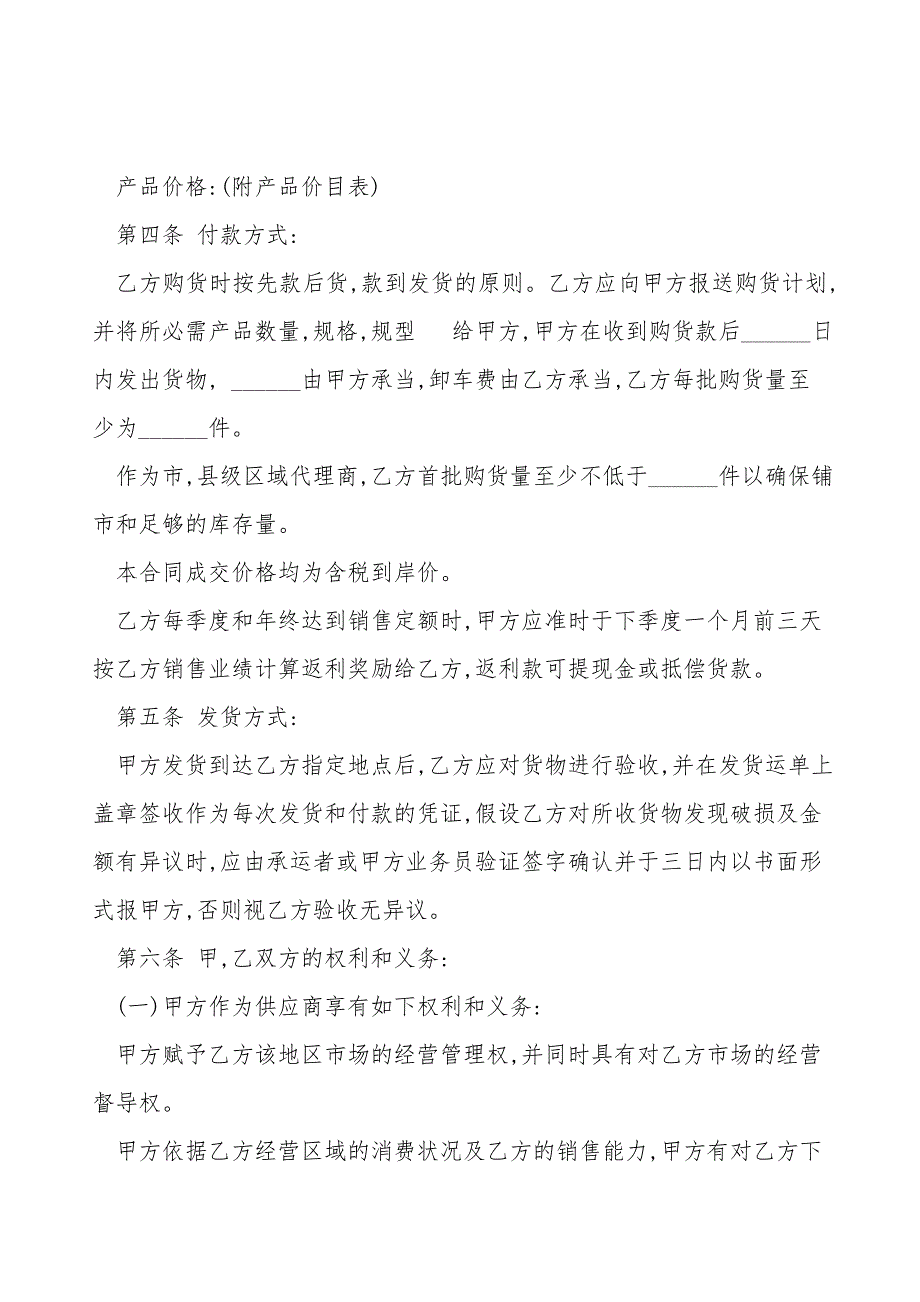 产品价格:(附产品价目表)
第四条 付款方式:
乙方购货时按先款后货,款到发货的原则。乙方应向甲方报送购货计划,
并将所必需产品数量,规格,规型   给甲方,甲方在收到购货款后______日
内发出货物, ______由甲方承当,卸车费由乙方承当,乙方每批购货量至
少为______件。
作为市,县级区域代理商,乙方首批购货量至少不低于______件以确保铺
市和足够的库存量。
本合同成交价格均为含税到岸价。
乙方每季度和年终达到销售定额时,甲方应准时于下季度一个月前三天
按乙方销售业绩计算返利奖励给乙方,返利款可提现金或抵偿货款。
第五条 发货方式:
甲方发货到达乙方指定地点后,乙方应对货物进行验收,并在发货运单上
盖章签收作为每次发货和付款的凭证,假设乙方对所收货物发现破损及金
额有异议时,应由承运者或甲方业务员验证签字确认并于三日内以书面形
式报甲方,否则视乙方验收无异议。
第六条 甲,乙双方的权利和义务:
(一)甲方作为供应商享有如下权利和义务:
甲方赋予乙方该地区市场的经营管理权,并同时具有对乙方市场的经营
督导权。
甲方依据乙方经营区域的消费状况及乙方的销售能力,甲方有对乙方下